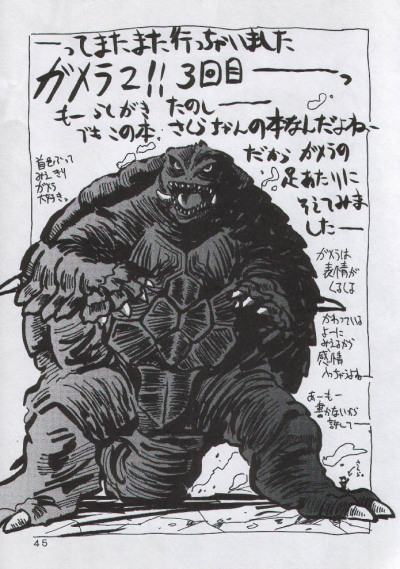 —ってまたまた行っちゃいました
ガメラ2!! 3回目——っ
もーらくがき たのしー——
でも この本、さくらちゃんの本なんだよね、
だから ガメラの
足あたりに
そえてみま
した—
みえきり
ガメラ
大好き。
ガメラは
表情が
くるくる
かわっている
よーに
みえるから
感情
入っちゃうよねー
あーもー
書かないが
許して——
さくら
45